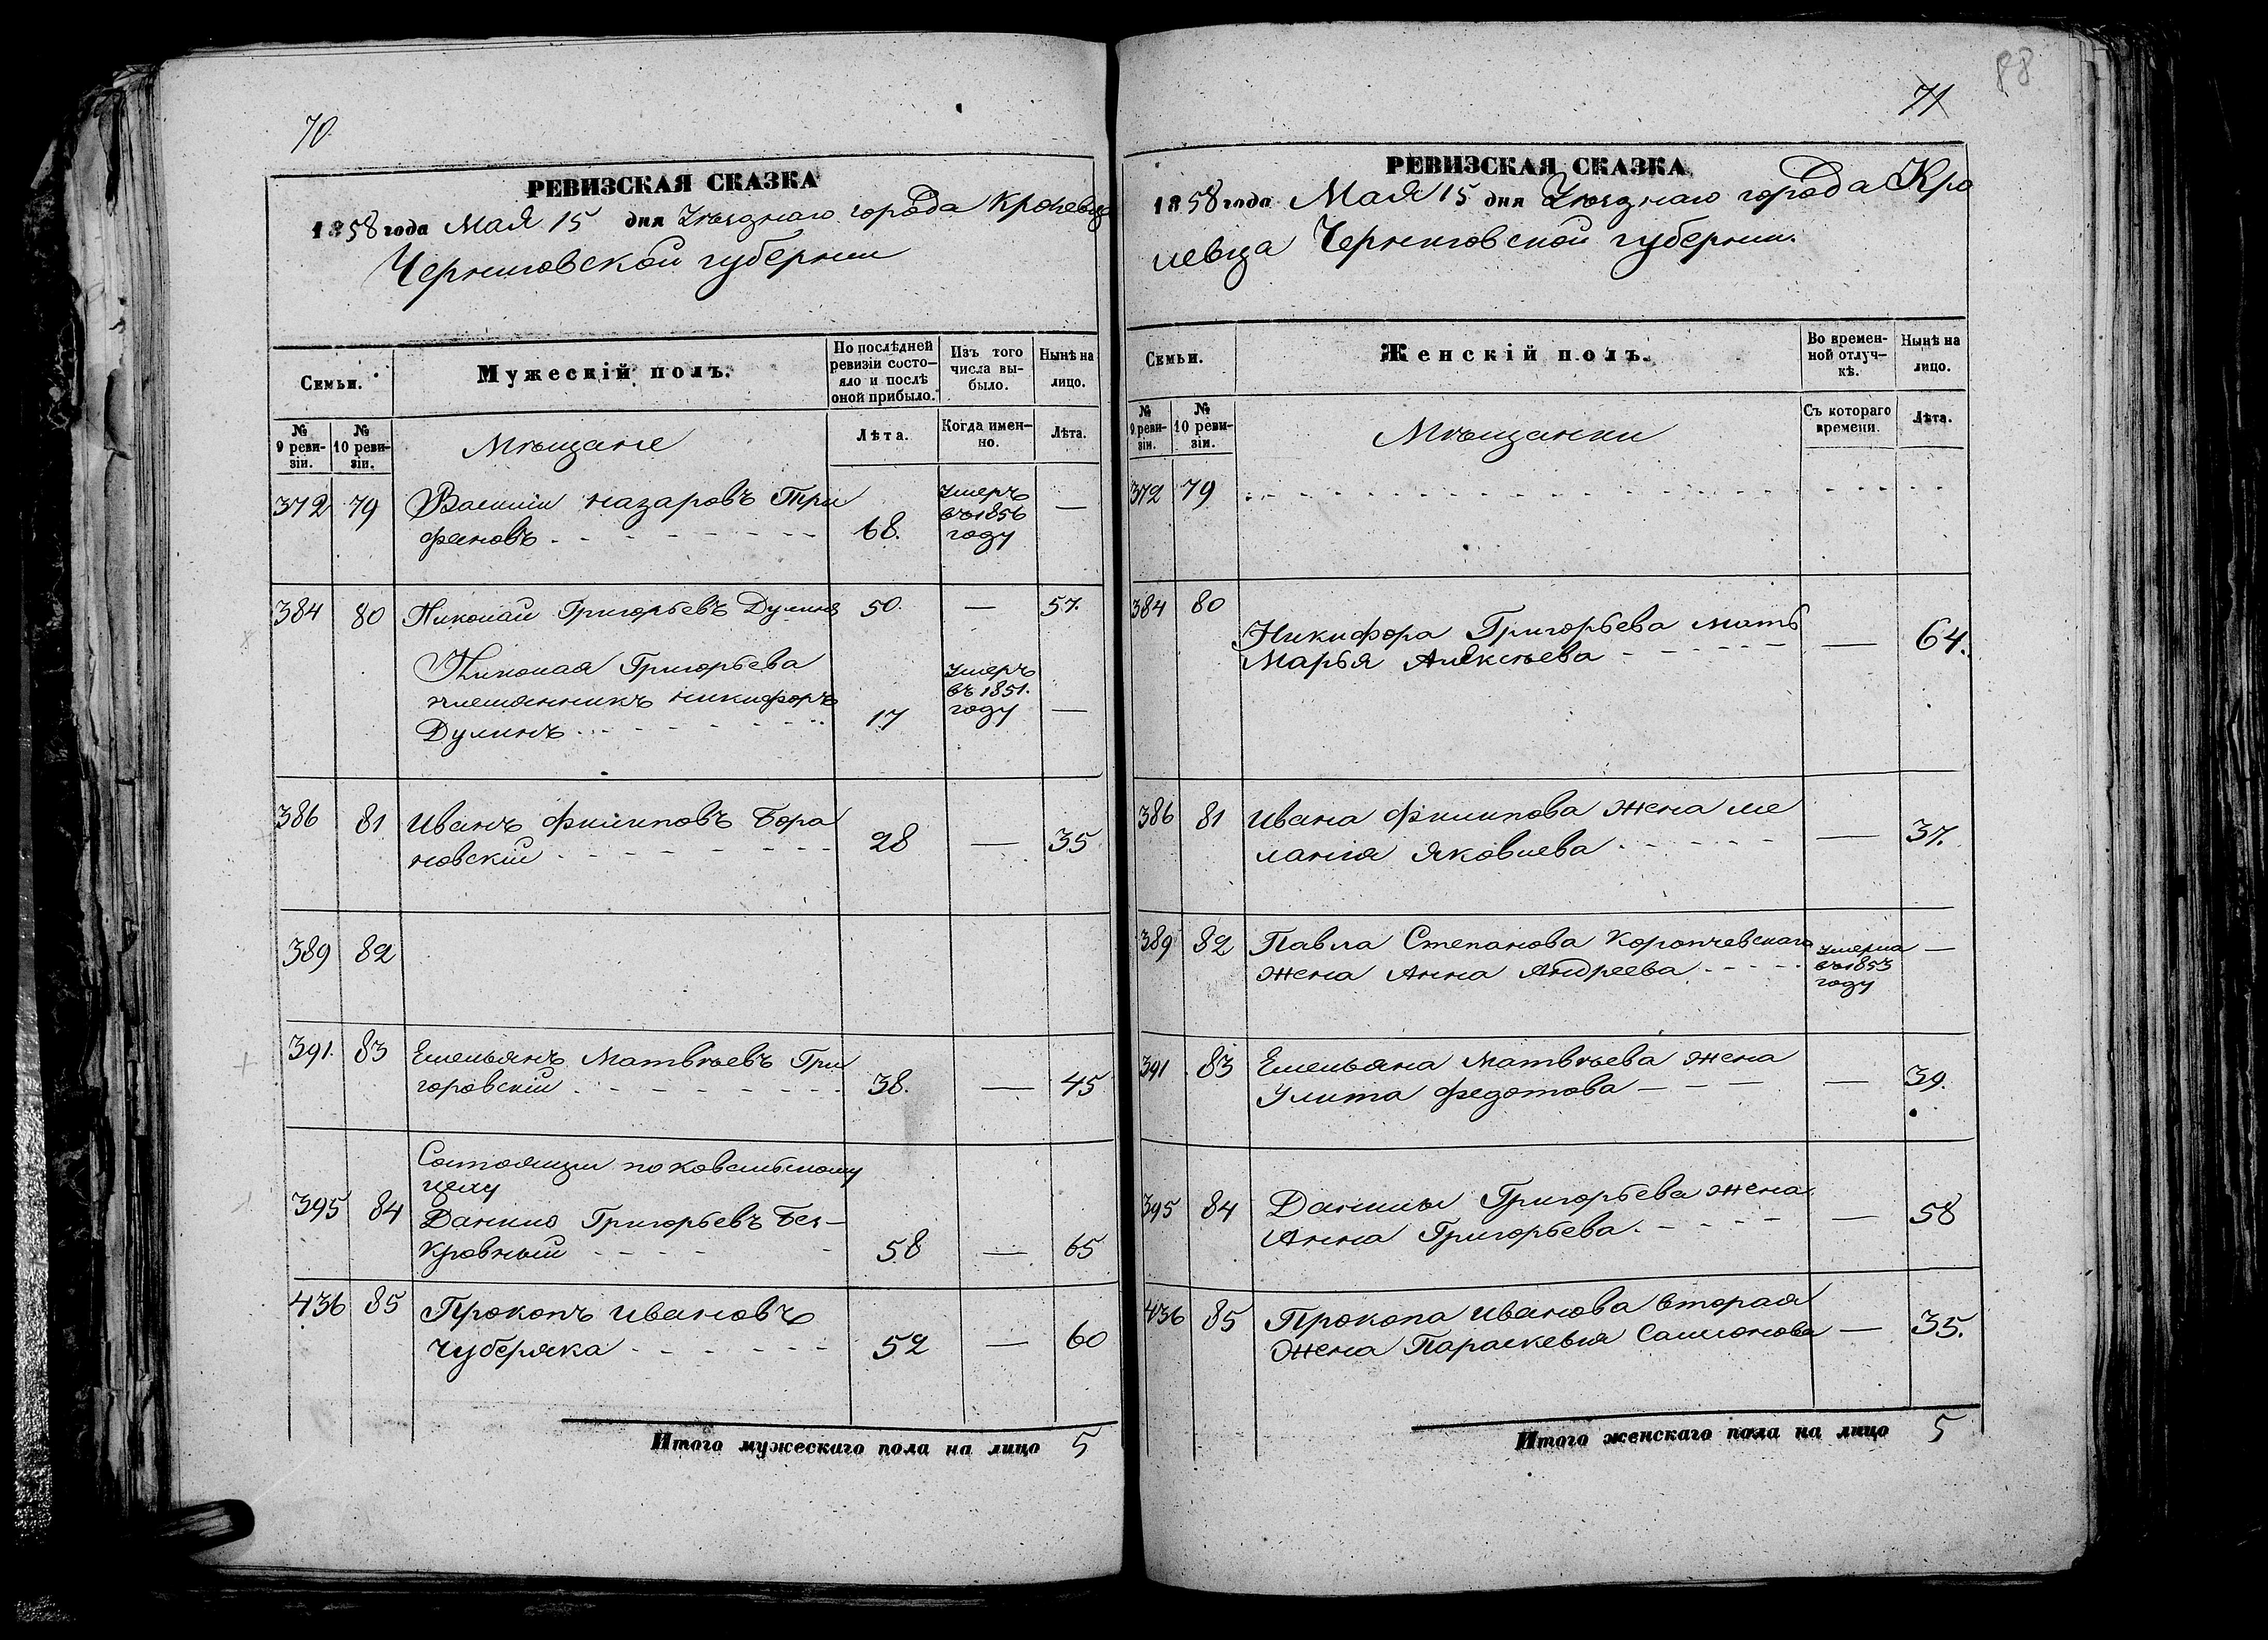 70
РЕВИЗСКАЯ СКАЗКА
1858 года Мая 15 дня Уѣзднаго города Кролевца
Черниговской губернии
Семьи.
Мужескій полъ.
По послѣдней ревизіи состо-
яло и послѣ оной прибыло.
Изъ того числа вы-
было.
Нынѣ на лицо.
№ 9 реви-
зіи.
№ 10 реви-
зіи.
Мѣщане
Лѣта.
Когда имен-
но.
Лѣта.
372 79 Василій Назаровъ Три
фановъ 68. умеръ въ 1856 году —
384 80 Николай Григорьевъ Дулинъ 50. — 57.
Николая Григорьева
племянникъ Никифоръ
Дулинъ 17 умеръ въ 1851. году —
386 81 Иванъ Филиповъ Бора
новскій 28 — 35
389 82
391. 83 Емельянъ Матвѣевъ Гри
горовскій 38. — 45
Состоящии по
цеху
395 84 Данило Григорьевъ Без-
кровный 58 — 65
436 85 Прокопъ Ивановъ
Чуберяка 52 — 60
Итого мужескаго пола на лицо 5
88
71
РЕВИЗСКАЯ СКАЗКА
1858 года Мая 15 дня Уѣзднаго города Кро
левца Черниговской губернии.
Семьи.
Женскій полъ.
Во времен-
ной отлуч-
кѣ.
Нынѣ на лицо.
№ 9 реви-
зіи.
№ 10 реви-
зіи.
Мѣщанки
Съ котораго времени.
Лѣта.
372 79
384 80
Никифора Григорьева мать
Марья Алексѣева — 64.
386 81 Ивана Филипова жена Ме
ланія Яковлева — 37.
389 82 Павла Степанова Коропчевскаго
жена Анна Андреева умерла въ 1853 году —
391 83 Емельяна Матвѣева жена
Улита Федотова — 39.
395 84 Данилы Григорьева жена
Анна Григорьева — 58
436 85 Прокопа Иванова вторая
жена Параскевия Самсонова — 35.
Итого женскаго пола на лицо 5